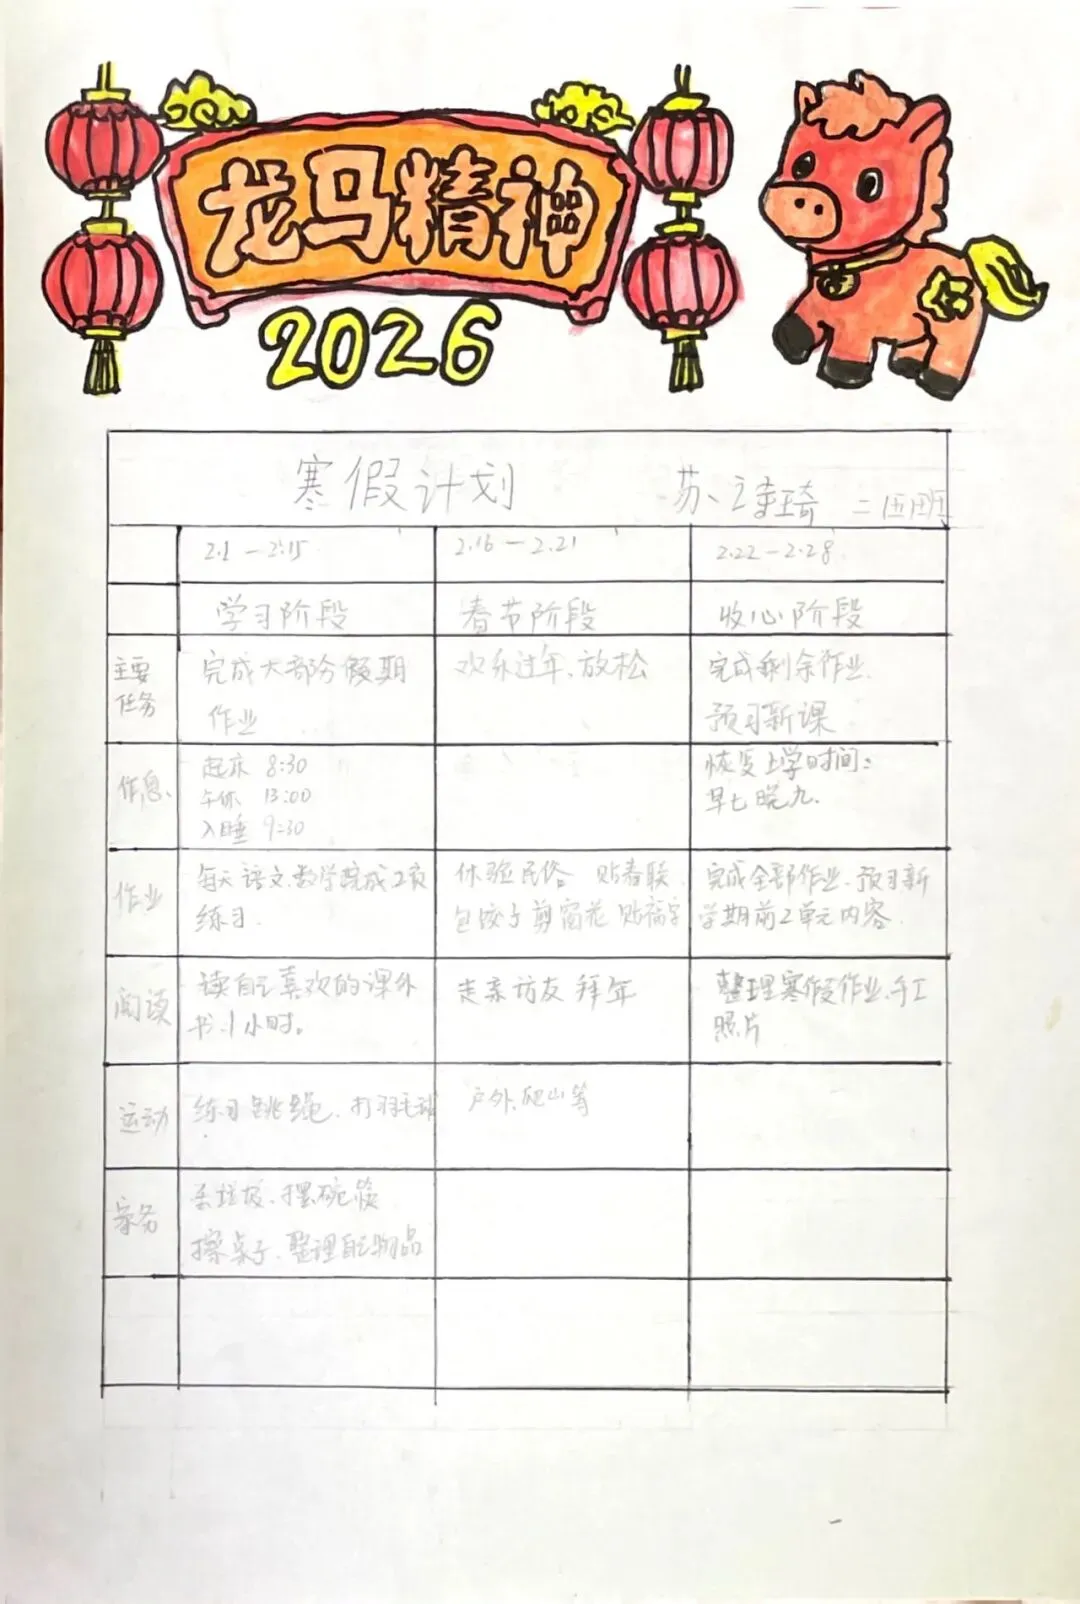 龙马精神
2026
寒假计划 苏、诗琦 二(五)班
2.1—2.15 2.16—2.21 2.22—2.28
学习阶段 春节阶段 收心阶段
主要任务
完成大部分假期
作业
欢乐过年、放松
完成剩余作业、
预习新课
作息、
起床 8:30
午休 13:00
入睡 9:30
恢复上学时间:
早七晚九.
作业
每天语文、数学完成2项
练习.
体验民俗 贴春联
包饺子 剪窗花 贴福字
完成全部作业、预习新
学期前2单元内容.
阅读
读自己喜欢的课外
书、1小时。
走亲访友 拜年
整理寒假作业、手工
照片
运动
练习跳绳、打羽毛球
户外、爬山等
家务
丢垃圾、摆碗筷
擦桌子、整理自己物品